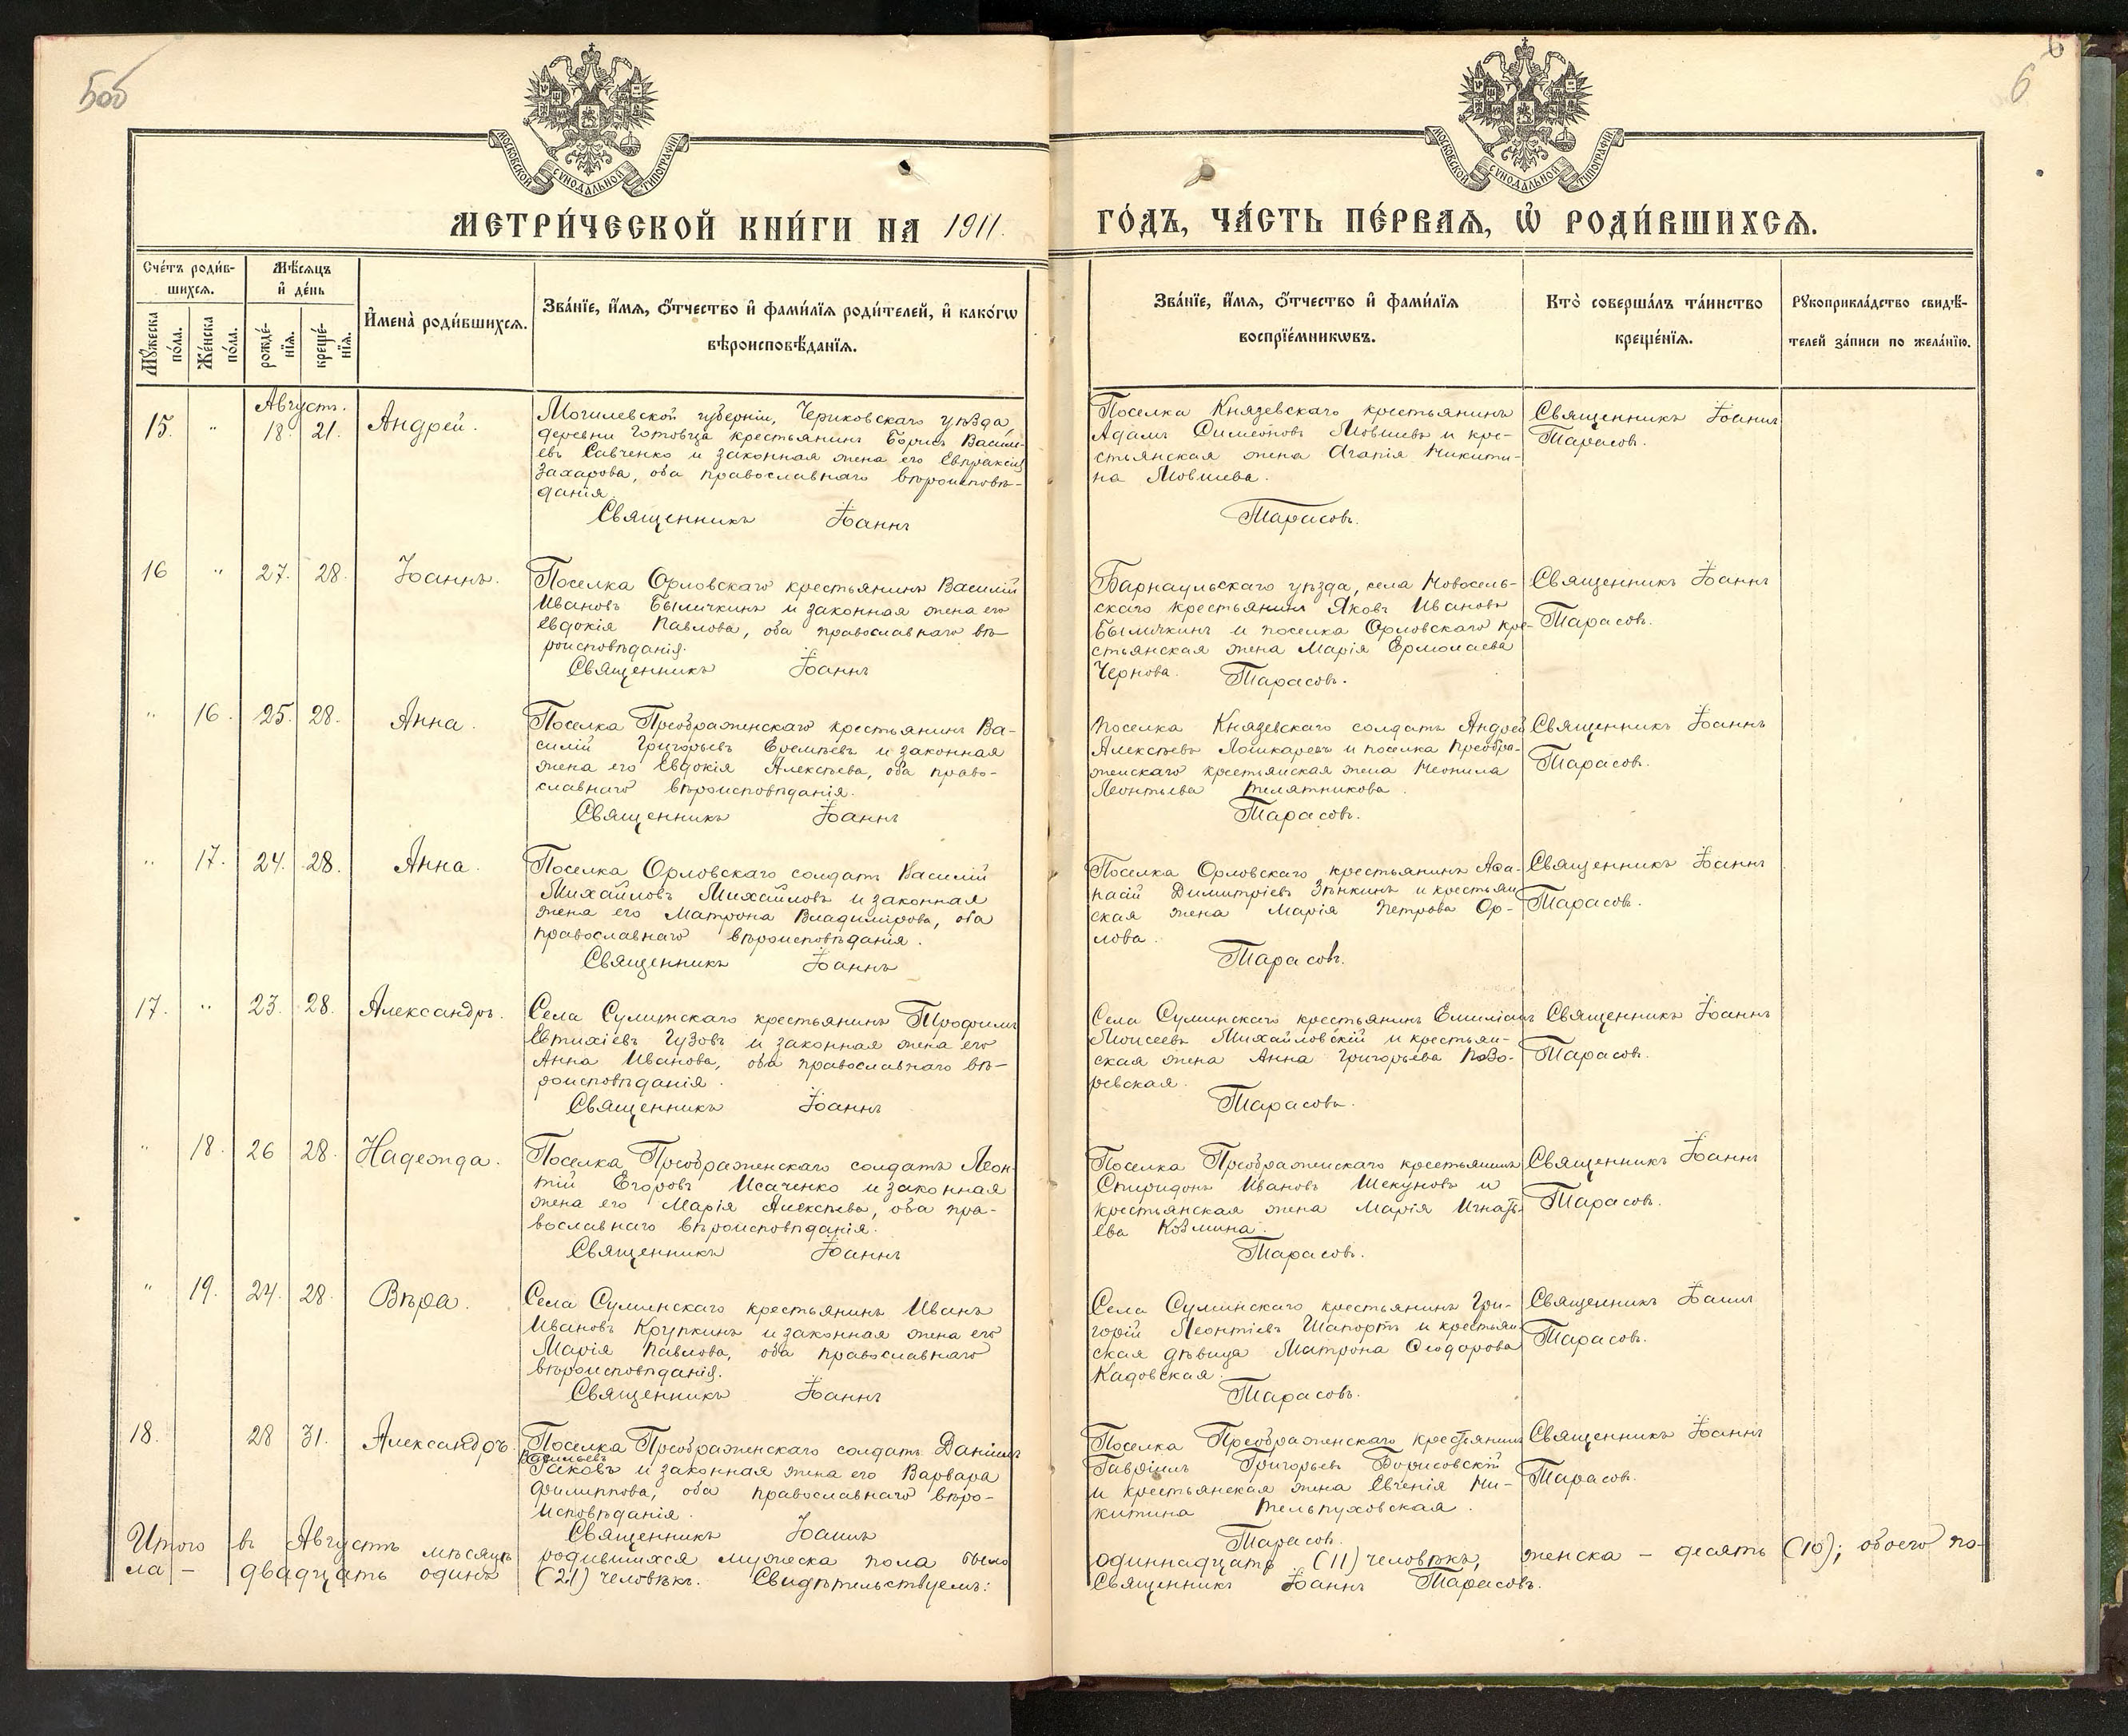 5об
6
6
МОСКОВСКОЙ СѴНОДАЛЬНОЙ ТИПОГРАФІИ
МОСКОВСКОЙ СѴНОДАЛЬНОЙ ТИПОГРАФІИ
МЕТРИ́ЧЕСКОЙ КНИ́ГИ НА 1911.
ГО́ДЪ, ЧА́СТЬ ПЕ́РВАѦ, Ѡ҆ РОДИ́ВШИХСѦ.
Сче́тъ роди́в-
шихсѧ.
Мꙋ́жеска по́ла.
Же́нска по́ла.
Мѣ́сѧцъ
и҆ де́нь
рожде́-
нїѧ.
креще́-
нїѧ.
И҆мена̀ роди́вшихсѧ.
Зва́нїе, и҆́мѧ, ѻ҆́тчество и҆ фами́лїѧ роди́телей, и҆ како́гѡ
вѣроисповѣ́данїѧ.
Зва́нїе, и҆́мѧ, ѻ҆́тчество и҆ фами́лїѧ
воспрїе́мникѡвъ.
Кто̀ соверша́лъ та́инство
креще́нїѧ.
Рꙋкоприкла́дство свидѣ́-
телей за́писи по жела́нїю.
Августъ.
15. " 18. 21. Андрей.
Могилевской губерніи, Чериковскаго уѣзда,
деревни Готовца крестьянинъ Борисъ Василь-
евъ Савченко и законная жена его Евпраксія
Захарова, оба православнаго вѣроисповѣ-
данія.
Священникъ Іоаннъ
Поселка Князевскаго крестьянинъ
Адамъ Симеоновъ Мовшевъ и кре-
стьянская жена Агапія Никити-
на Мовшева.
Тарасовъ.
Священникъ Іоаннъ
Тарасовъ.
16 " 27. 28. Іоаннъ.
Поселка Орловскаго крестьянинъ Василій
Ивановъ Быличкинъ и законная жена его
Евдокія Павлова, оба православнаго вѣ-
роисповѣданія.
Священникъ Іоаннъ
Барнаульскаго уѣзда, села Новосель-
скаго крестьянинъ Яковъ Ивановъ
Быличкинъ и поселка Орловскаго кре-
стьянская жена Марія Ермолаева
Чернова.
Тарасовъ.
Священникъ Іоаннъ
Тарасовъ.
" 16. 25. 28. Анна.
Поселка Преображенскаго крестьянинъ Ва-
силій Григорьевъ Еремѣевъ и законная
жена его Евдокія Алексѣева, оба право-
славнаго вѣроисповѣданія.
Священникъ Іоаннъ
Поселка Князевскаго солдатъ Андрей
Алексѣевъ Лошкаревъ и поселка Преобра-
женскаго крестьянская жена Неонила
Леонтьева Телятникова.
Тарасовъ.
Священникъ Іоаннъ
Тарасовъ.
" 17. 24. 28. Анна.
Поселка Орловскаго солдатъ Василій
Михайловъ Михайловъ и законная
жена его Матрона Владимірова, оба
православнаго вѣроисповѣданія.
Священникъ Іоаннъ
Поселка Орловскаго крестьянинъ Аѳа-
насій Димитріевъ Зѣнкинъ и крестьян
ская жена Марія Петрова Ор-
лова.
Тарасовъ.
Священникъ Іоаннъ
Тарасовъ.
17. " 23. 28. Александръ.
Села Суминскаго крестьянинъ Трофимъ
Евтихіевъ Гузовъ и законная жена его
Анна Иванова, оба православнаго вѣ-
роисповѣданія.
Священникъ Іоаннъ
Села Суминскаго крестьянинъ Емиліанъ
Моисеевъ Михайловскій и крестьян-
ская жена Анна Григорьева
ревская.
Тарасовъ.
Священникъ Іоаннъ
Тарасовъ.
" 18. 26 28. Надежда.
Поселка Преображенскаго солдатъ Леон-
тій Егоровъ Исаченко и законная
жена его Марія Алексѣева, оба пра-
вославнаго вѣроисповѣданія.
Священникъ Іоаннъ
Поселка Преображенскаго крестьянинъ
Спиридонъ Ивановъ Шекуновъ и
крестьянская жена Марія Игнать-
ева Козмина.
Тарасовъ.
Священникъ Іоаннъ
Тарасовъ.
" 19. 24. 28. Вѣра.
Села Суминскаго крестьянинъ Иванъ
Ивановъ Крупкинъ и законная жена его
Марія Павлова, оба православнаго
вѣроисповѣданія.
Священникъ Іоаннъ
Села Суминскаго крестьянинъ Гри-
горій Леонтіевъ Шапортъ и крестьян
ская дѣвица Матрона Ѳеодорова
Кадовская.
Тарасовъ.
Священникъ Іоаннъ
Тарасовъ.
18. 28 31. Александръ.
Поселка Преображенскаго солдатъ Даніилъ
Васильевъ
и законная жена его Варвара
Филиппова, оба православнаго вѣро-
исповѣданія.
Священникъ Іоаннъ
Поселка Преображенскаго крестьянинъ
Гавріилъ Григорьевъ Борисовскій
и крестьянская жена Евгенія Ни-
китина Тельпуховская.
Тарасовъ.
Священникъ Іоаннъ
Тарасовъ.
Итого въ Августѣ мѣсяцѣ родившихся мужеска пола было одиннадцать (11) человѣкъ, женска – десять (10); обоего по-
ла – двадцать одинъ (21) человѣкъ. Свидѣтельствуемъ: Священникъ Іоаннъ Тарасовъ.